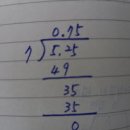 0.75
7)5.25
49
35
35
0